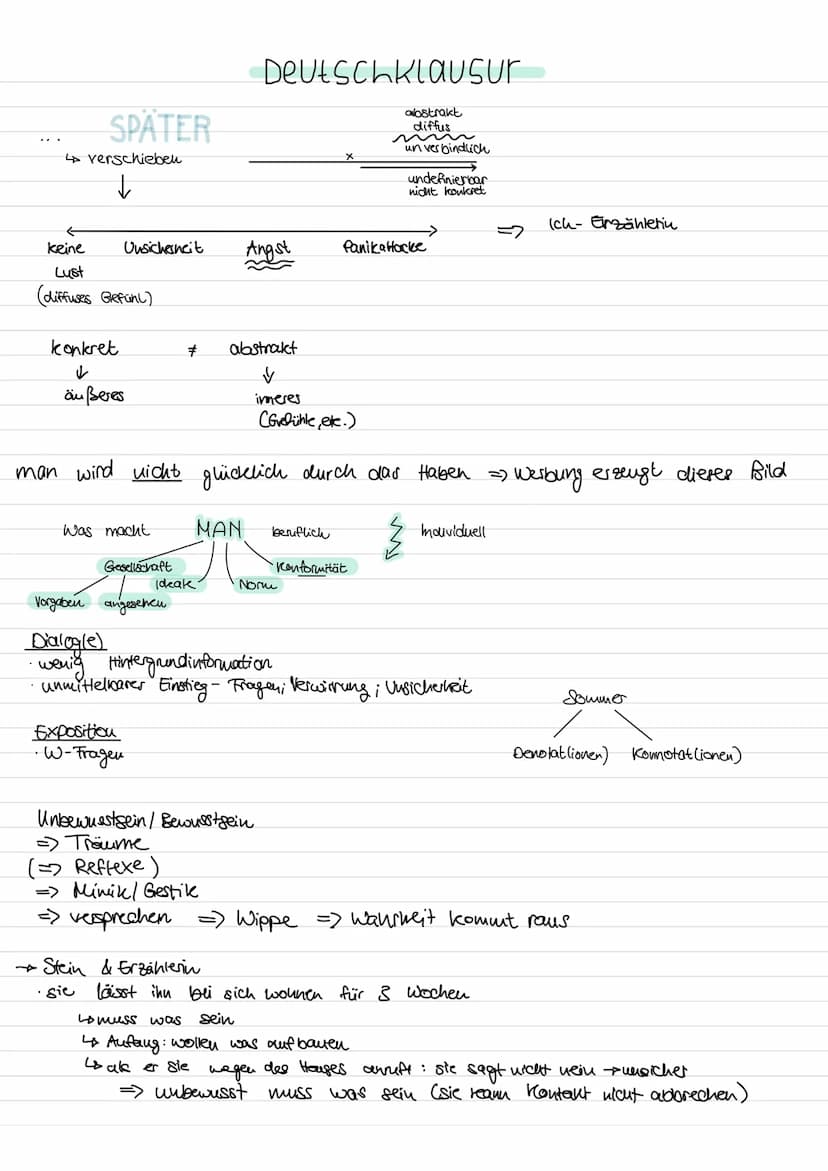 Deutschklausur
... SPÄTER
↳ verschieben
↓
abstrakt
diffus
unverbindlich
x
undefinierbar
nicht konkret
keine Unsicherheit Angst Panikattacke => Ich-Erzählerin
Lust
(diffuses Gefühl)
konkret ≠ abstrakt
↓ ↓
äußeres inneres
(Gefühle, etc.)
man wird nicht glücklich durch das Haben => Werbung erzeugt dieses Bild
Was macht MAN beruflich Individuell
Gesellschaft Konformität
Ideale Norm
Vorgaben angesehen
Dialog(e)
· wenig Hintergrundinformation
· unmittelbarer Einstieg - Fragen; Verwirrung; Unsicherheit
Sommer
Exposition
· W-Fragen
Denotat(ionen) Konnotat(ionen)
Unbewusstsein / Bewusstsein
=> Träume
(=> Reflexe)
=> Mimik / Gestik
=> versprechen => Wippe => Wahrheit kommt raus
→ Stein & Erzählerin
· sie lässt ihn bei sich wohnen für 3 Wochen
↳ muss was sein
↳ Anfang: wollen was aufbauen
↳ als er sie wegen des Hauses anruft: sie sagt nicht nein → unsicher
=> unbewusst muss was sein (sie kann Kontakt nicht abbrechen)